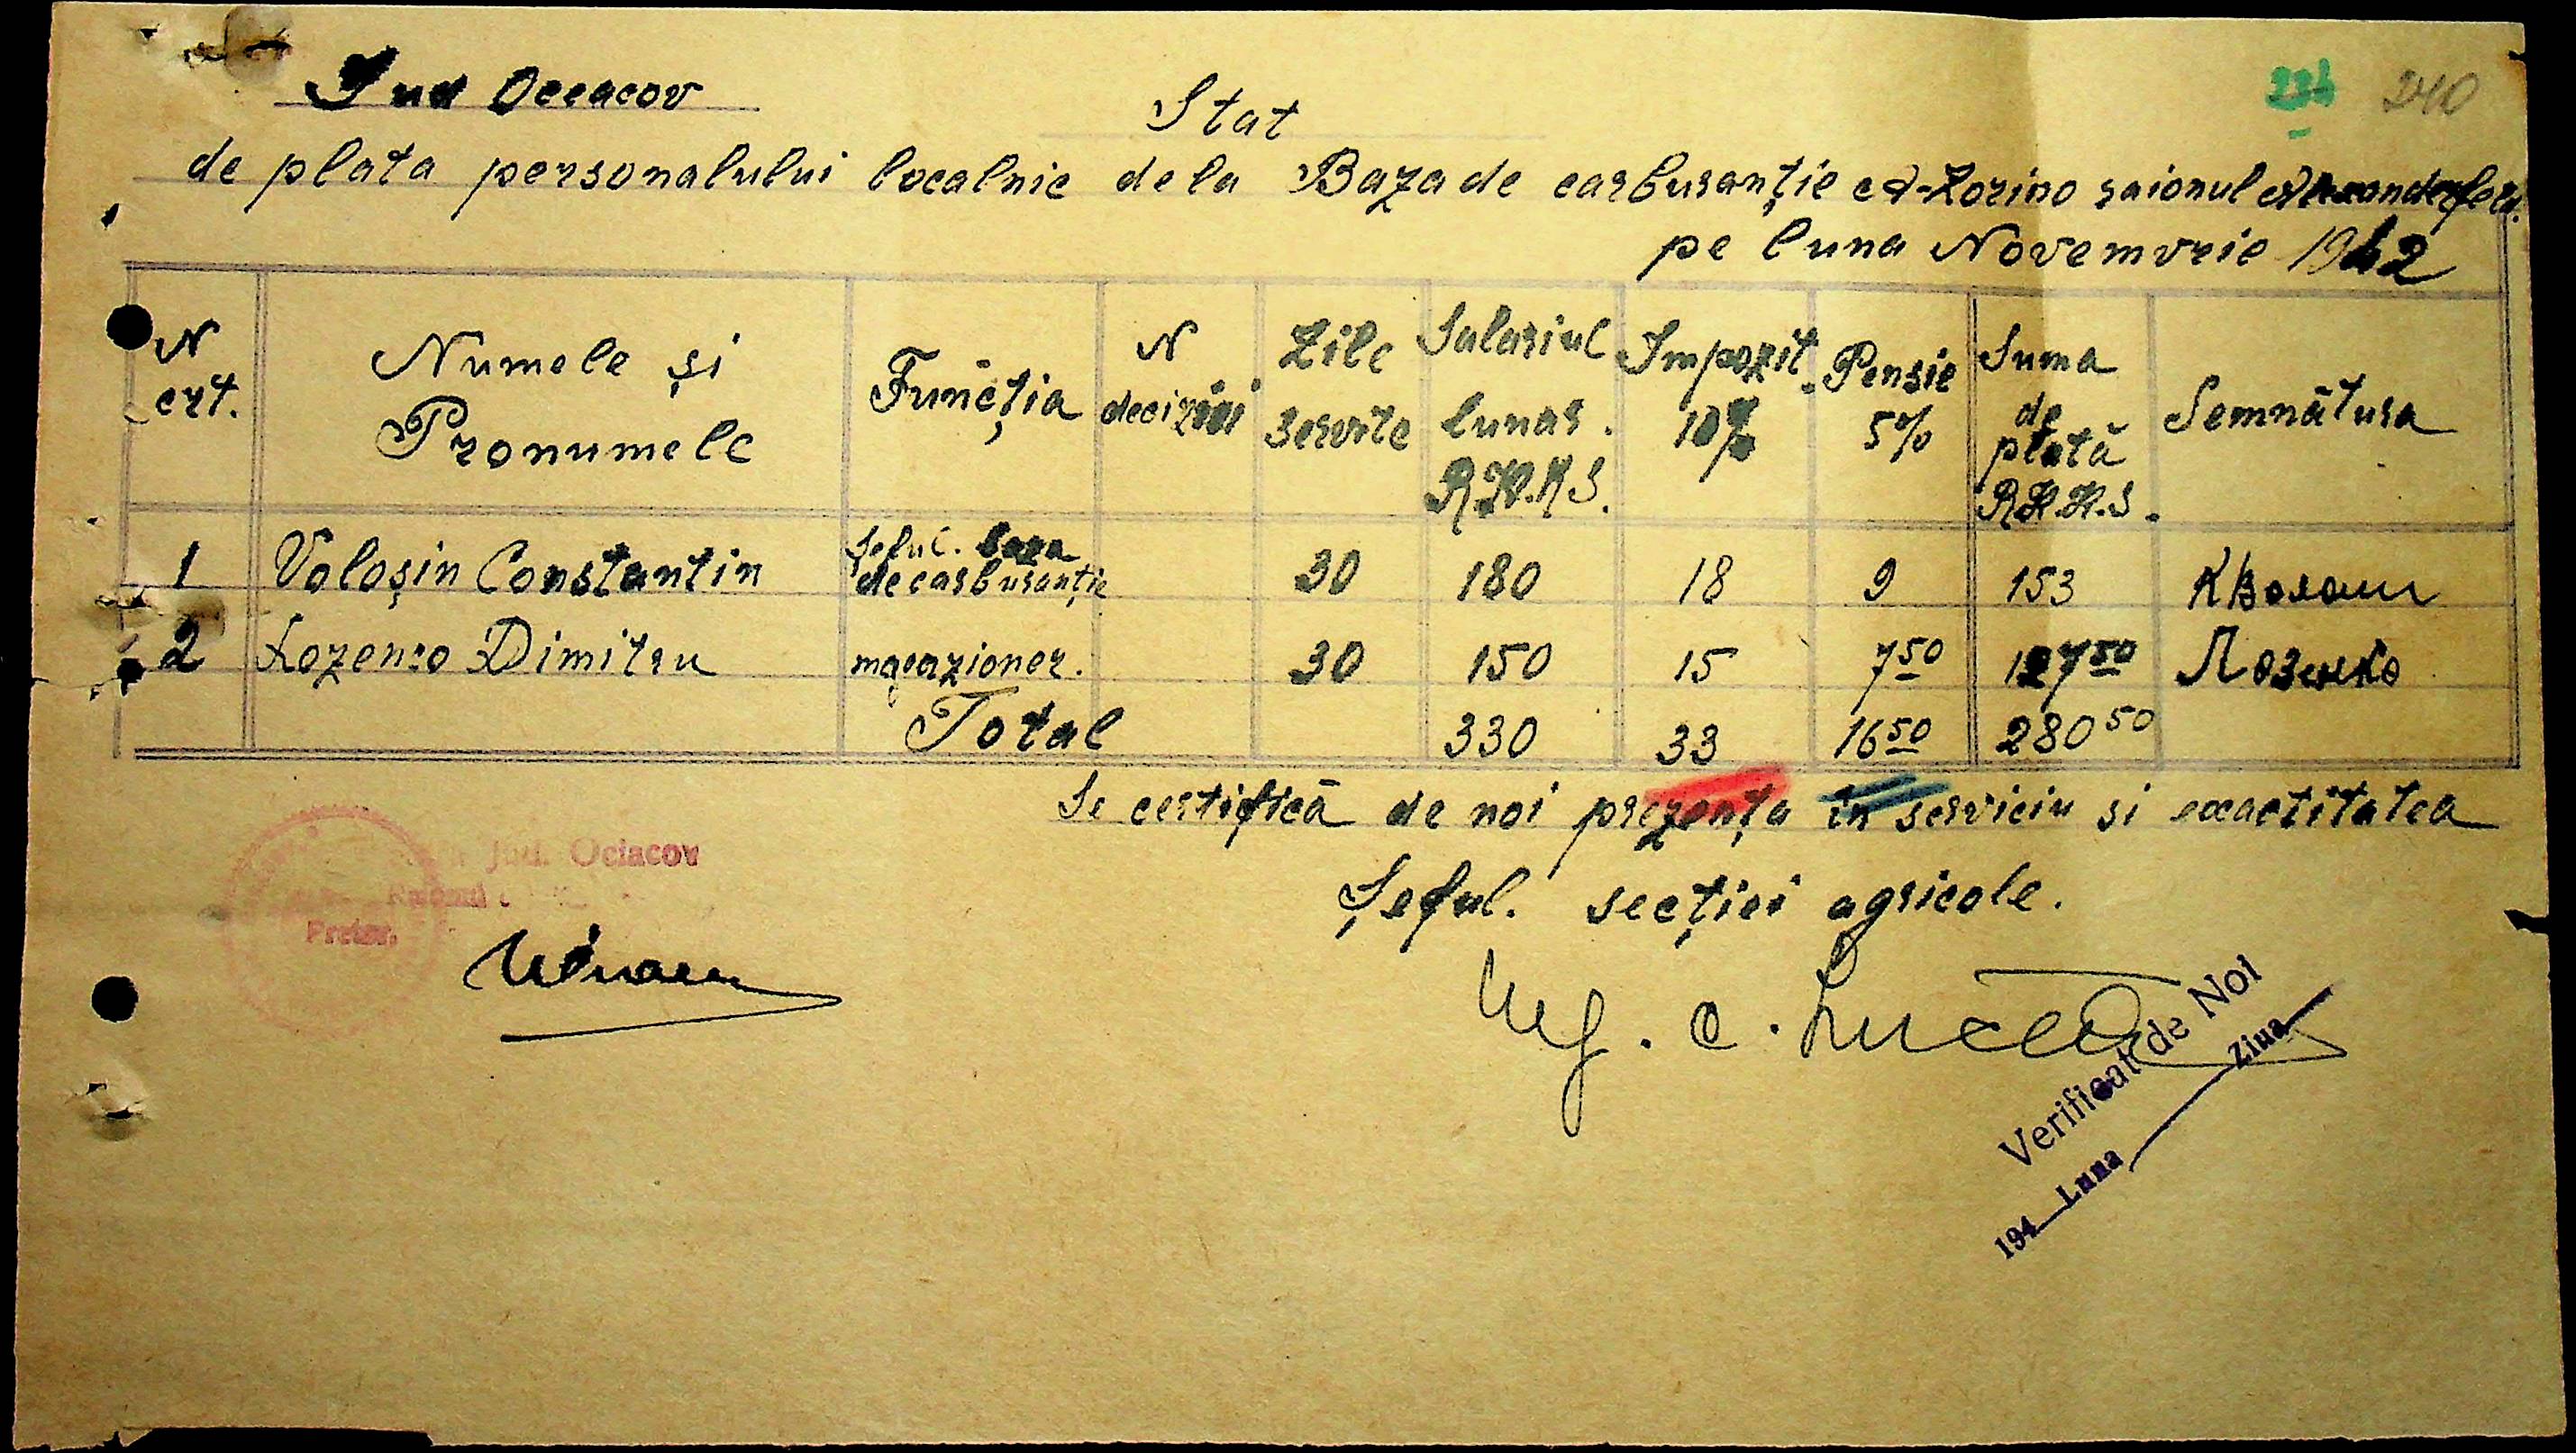 Jud Occacov
Stat
240
de plata personalului localnic de la Baza de carburanție A-Zorino raionul
pe luna Novemvrie 1942
N crt.
Numele și Pronumele
Funcția
N deciziei
Zile servite
Salariul lunar. R.K.K.S.
Impozit 10%
Pensie 5%
Suma de plată R.K.K.S.
Semnătura
1 Voloșin Constantin Șeful. baza de carburanție 30 180 18 9 153 КВолош
2 Lozenco Dimitru magazioner. 30 150 15 7 50 127 50 Лозенко
Total 330 33 16 50 280 50
Se certifică de noi prezența in serviciu si exactitatea
Jud. Ociacov
Pretor.
Șeful. secției agricole.
Ing. C.
Verificat de Noi
194 Luna Ziua